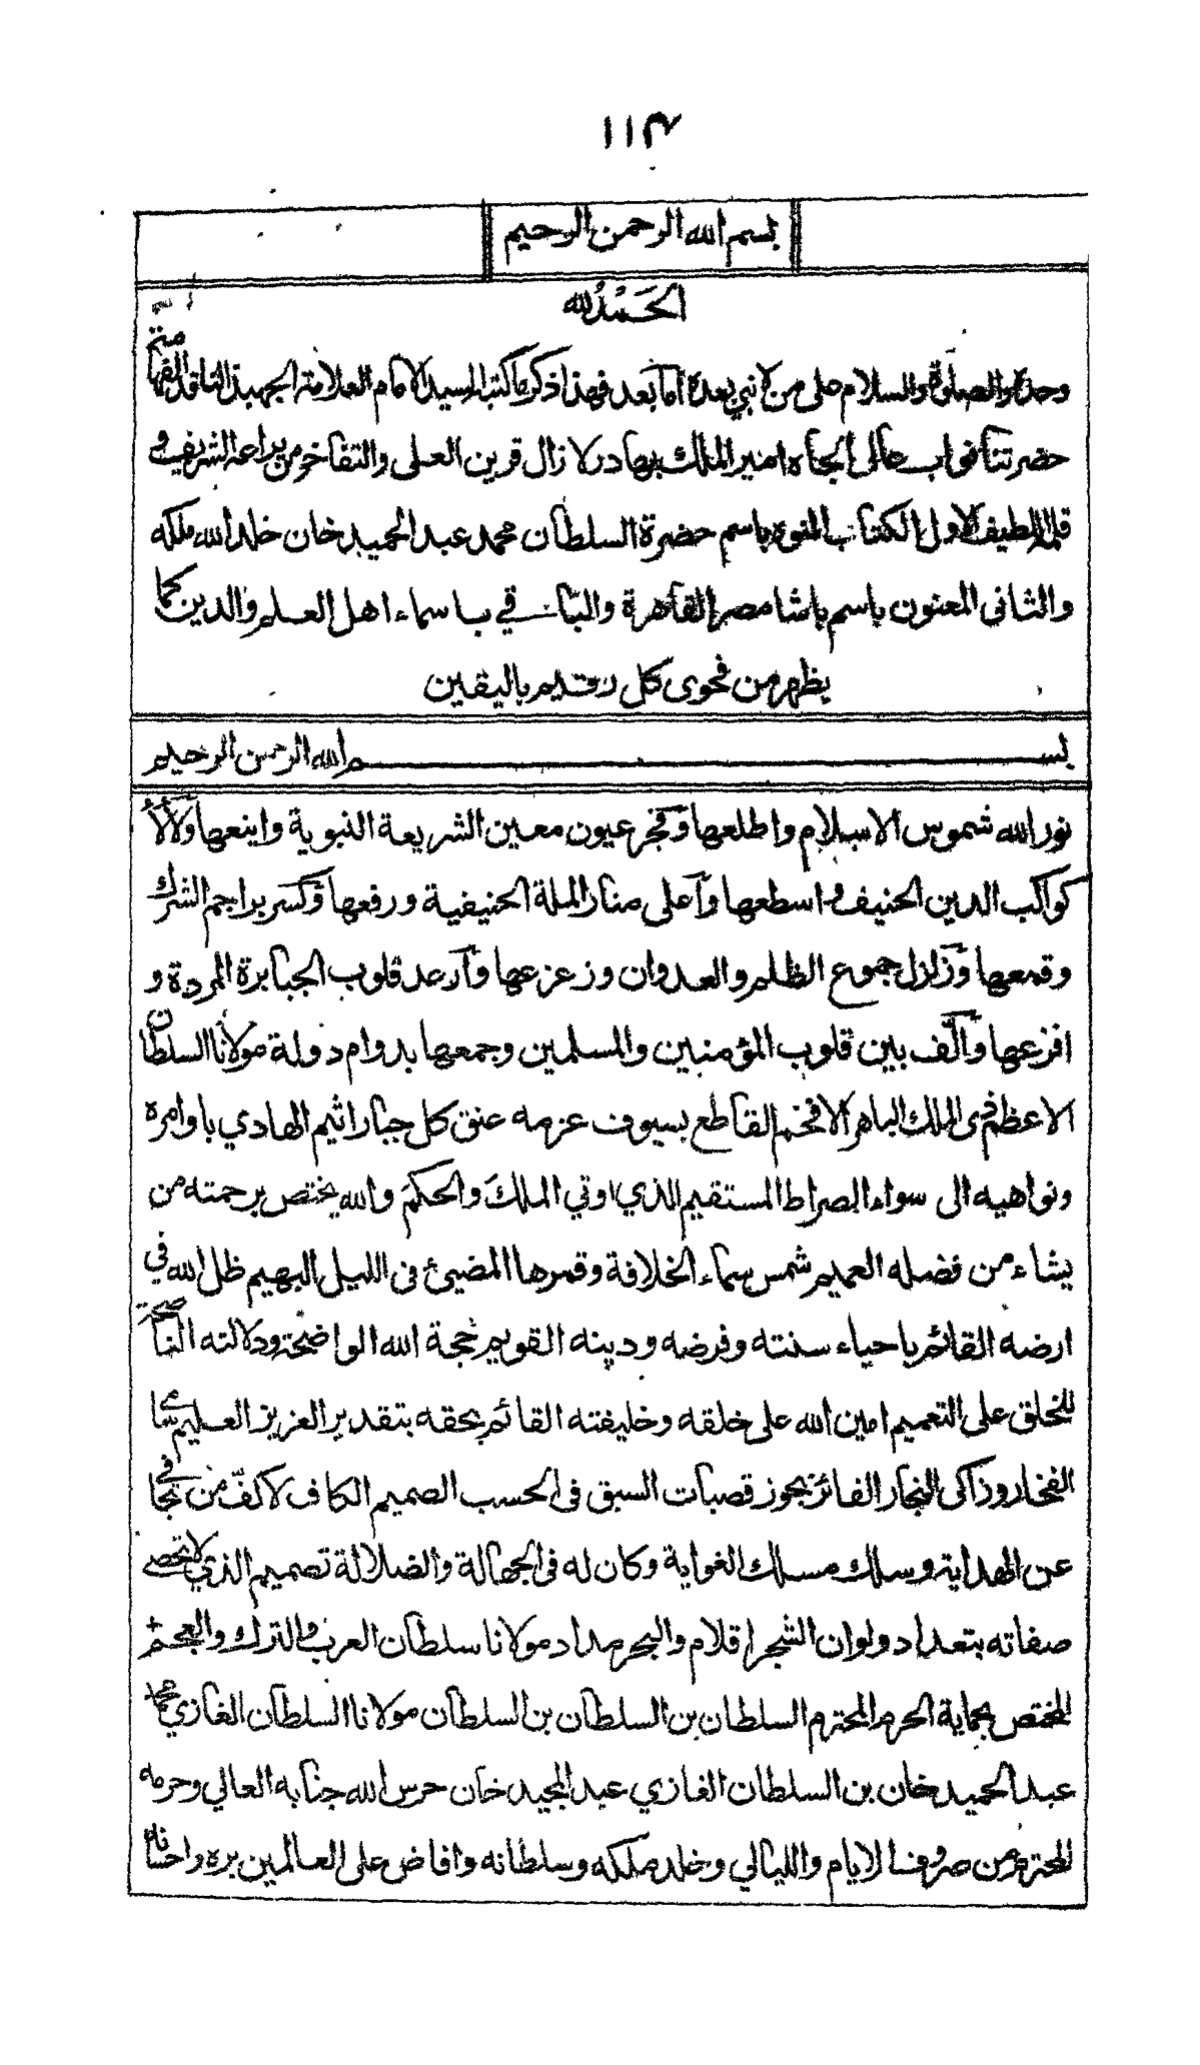 ١١٣
بسم الله الرحمن الرحيم
الحَمْدُ لله
وحده والصلوة والسلام على من لا نبي بعده اما بعد فهذا ذكر ما كتب السيد الامام العلامة الجهبذ الناقد الفهامة
حضرتنا نواب عالى الجاه امير الملك بهادر لا زال قرين العلى والتفاخر من يراعه الشريف و
قلمه اللطيف الاول الكتاب المنوه باسم حضرة السلطان محمد عبد الحميد خان خلد الله ملكه
والثانى المعنون باسم باشا مصر القاهرة والباقي باسماء اهل العلم والدين كما
يظهر من فحوى كل رقيم باليقين
بسم الله الرحمن الرحيم
نور الله شموس الاسلام واطلعها وفجر عيون معين الشريعة النبوية واينعها ولألأ
كواكب الدين الحنيف واسطعها وآعلى منار الملة الحنيفية ورفعها وكسر براجم الشرك
وقمعها وزلزل جموع الظلم والعدوان وزعزعها وأرعد قلوب الجبابرة المردة و
افزعها وألّف بين قلوب المؤمنين والمسلمين وجمعها بدوام دولة مولانا السلطان
الاعظم ذى الملك الباهر الافخم القاطع بسيوف عزمه عنق كل جبار اثيم الهادي باوامره
ونواهيه الى سواء الصراط المستقيم الذي اوتي الملكَ والحكمَ والله يختص برحمته من
يشاء من فضله العميم شمس سماء الخلافة وقمرها المضيئ فى الليل البهيم ظل الله في
ارضه القائم باحياء سنته وفرضه ودينه القويم حجة الله الواضحة ودلالته الناصحة
للخلق على التعميم امين الله على خلقه وخليفته القائم بحقه بتقدير العزيز العليم سامي
الفخار وزاكى النجار الفائز بحوز قصبات السبق فى الحسب الصميم الكاف لاكفّ من تجافى
عن الهداية وسلك مسلك الغواية وكان له فى الجهالة والضلالة تصميم الذي لا تحصى
صفاته بتعداد ولو ان الشجر اقلام والبحر مداد مولانا سلطان العرب والترك والعجم
المختص بحماية الحرم المحترم السلطان بن السلطان بن السلطان مولانا السلطان الغازي محمد
عبد الحميد خان بن السلطان الغازي عبد المجيد خان حرس الله جنابه العالي وحرمه
المحترم من صروف الايام والليالي وخلد ملكه وسلطانه وافاض على العالمين بره واحسانه